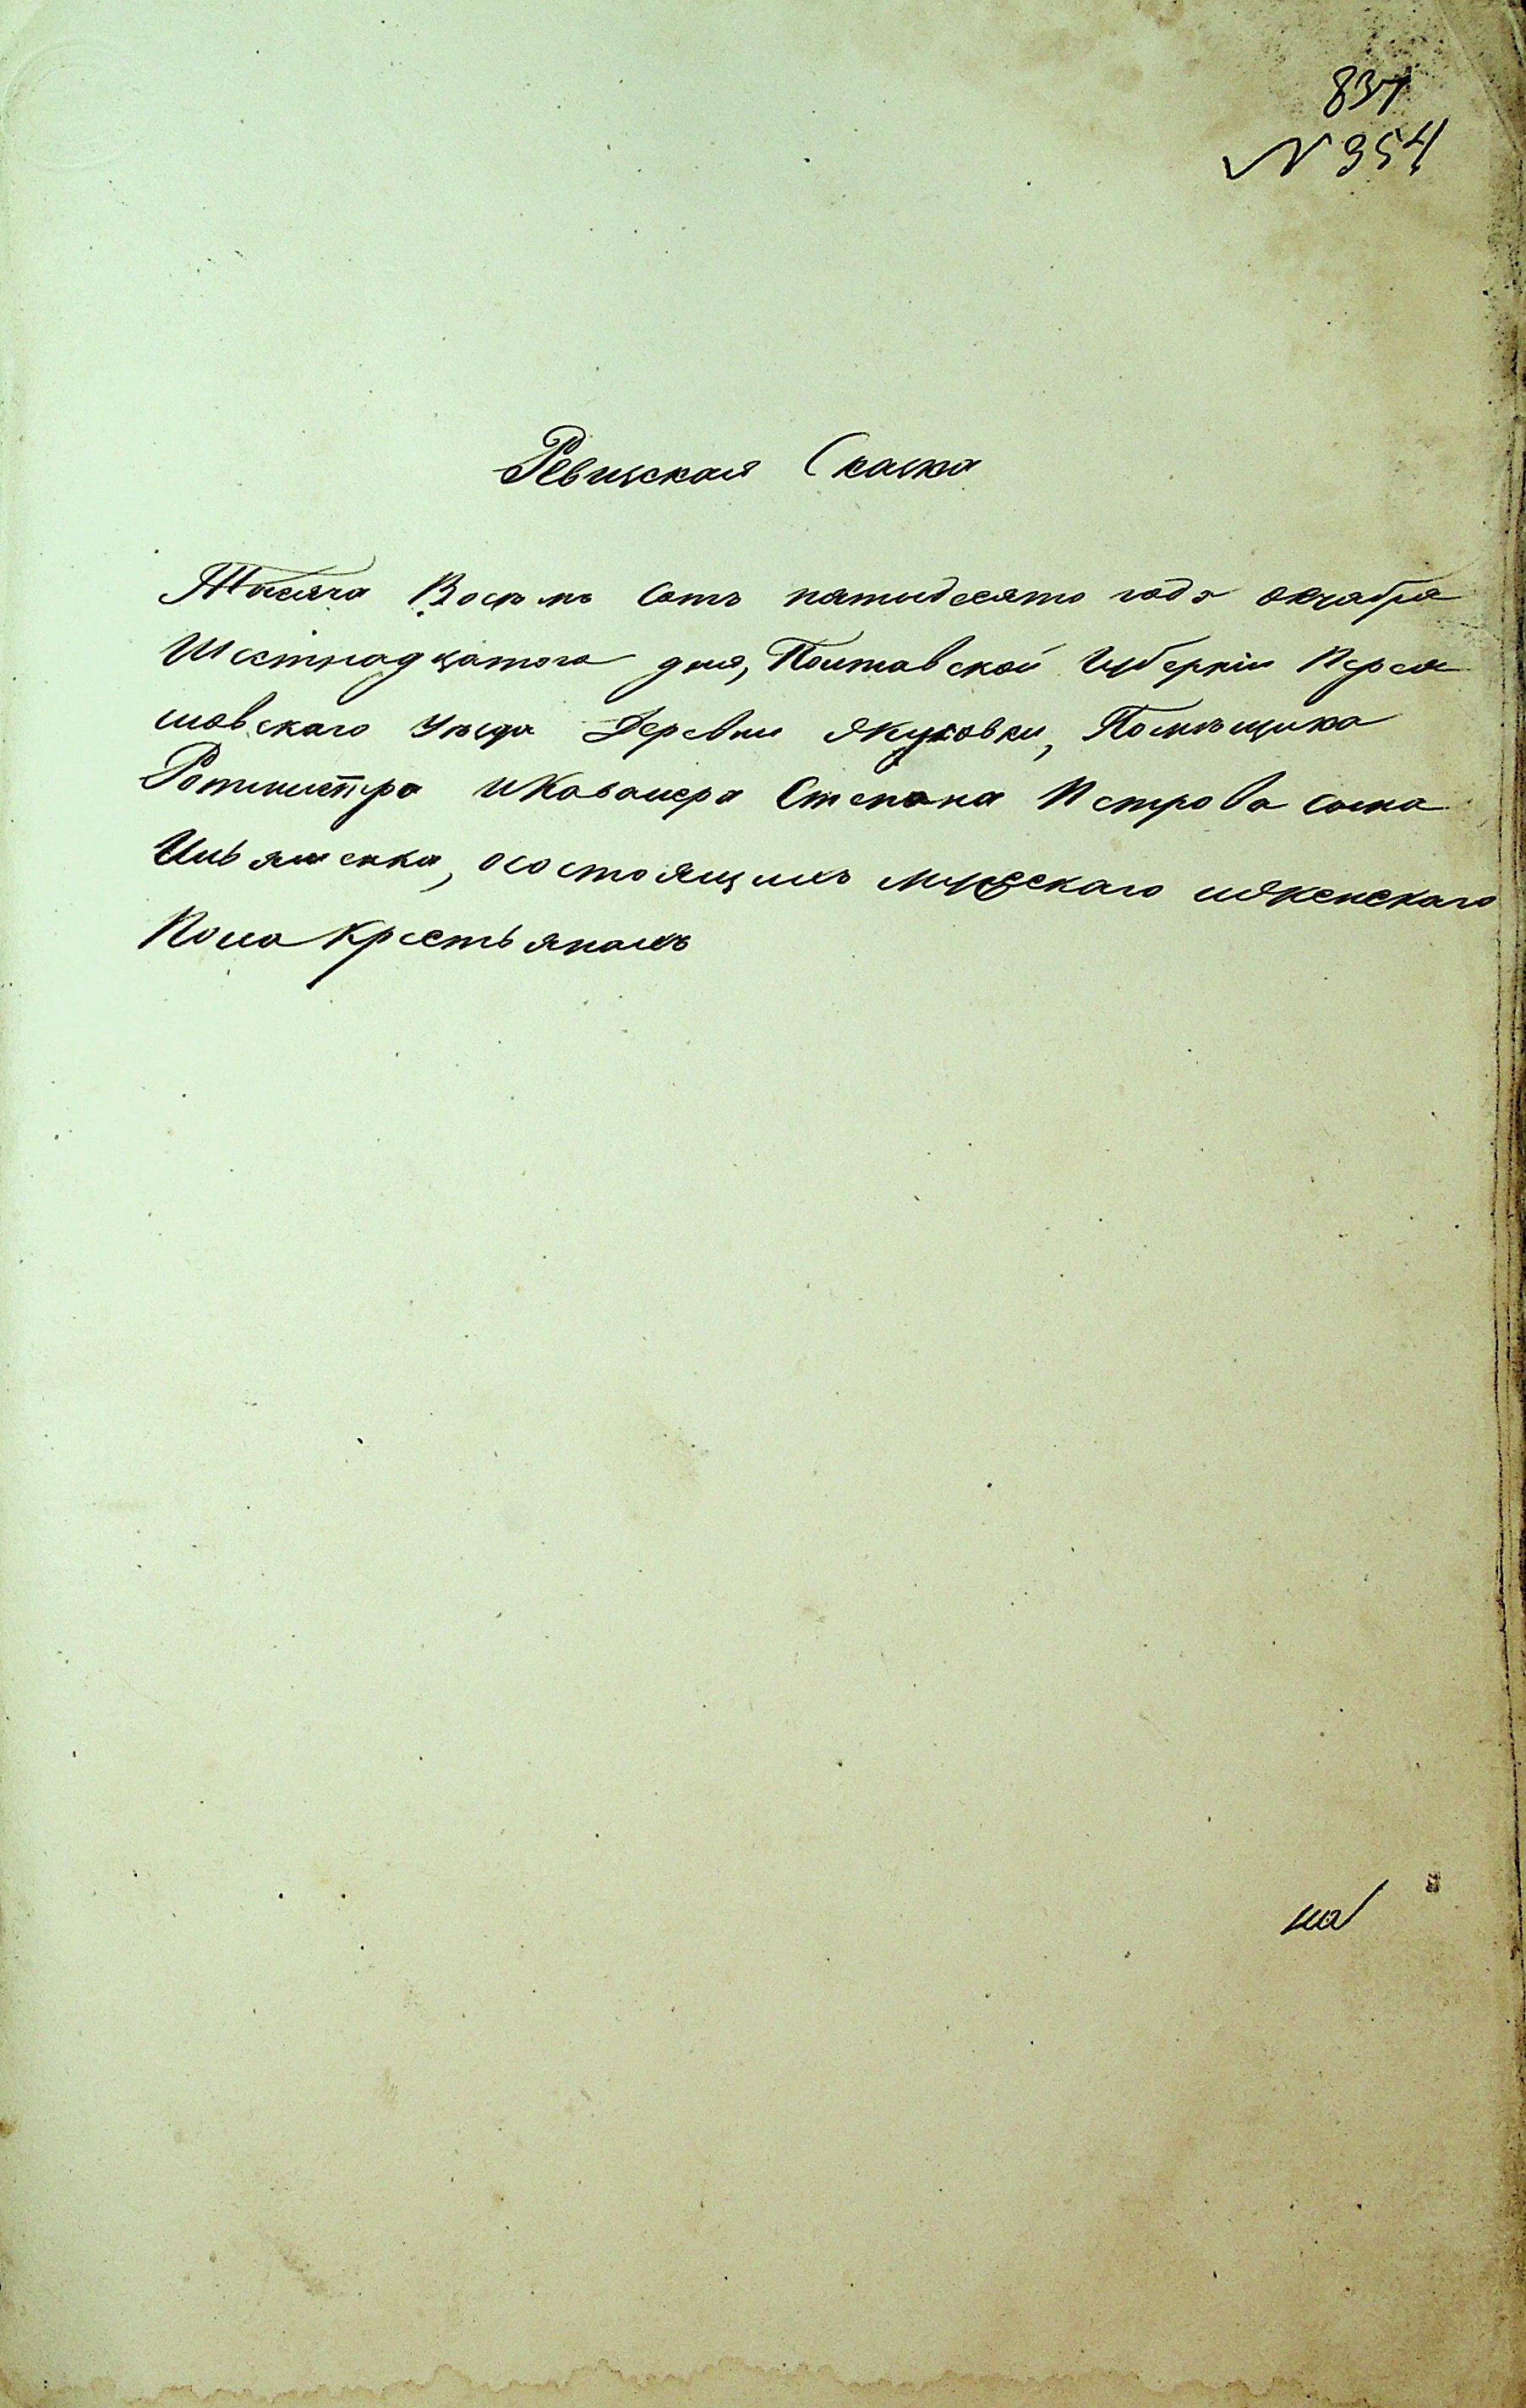 837
№ 354
Ревизская Сказка
Тысяча Восемь Сотъ пятидесято года октября
Шестнадцатого дня, Полтавской Губерніи Перея
словскаго Уѣзда Деревни Якуховки, Помѣщика
Ротмистра и Кавалера Степана Петрова сына
Ильяшенка, о состоящихъ мужескаго и женскаго
Пола Крестьянахъ